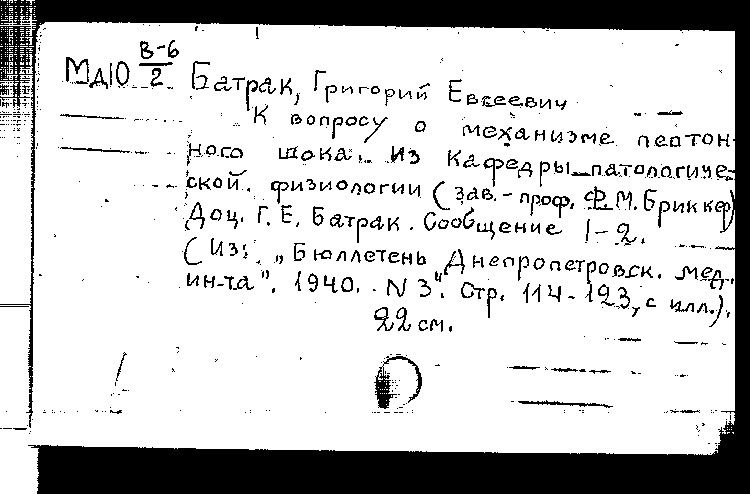 МД10 В-6/2 Батрак, Григорий Евсеевич
К вопросу о механизме пептон-
ного шока. Из Кафедры патологиче-
ской физиологии (зав.-проф. Ф.М. Бриккер)
Доц. Г.Е. Батрак. Сообщение 1-2.
(Из: "Бюллетень Днепропетровск. мед.
ин-та". 1940. N 3. Стр. 114-123, с илл.).
22 см.